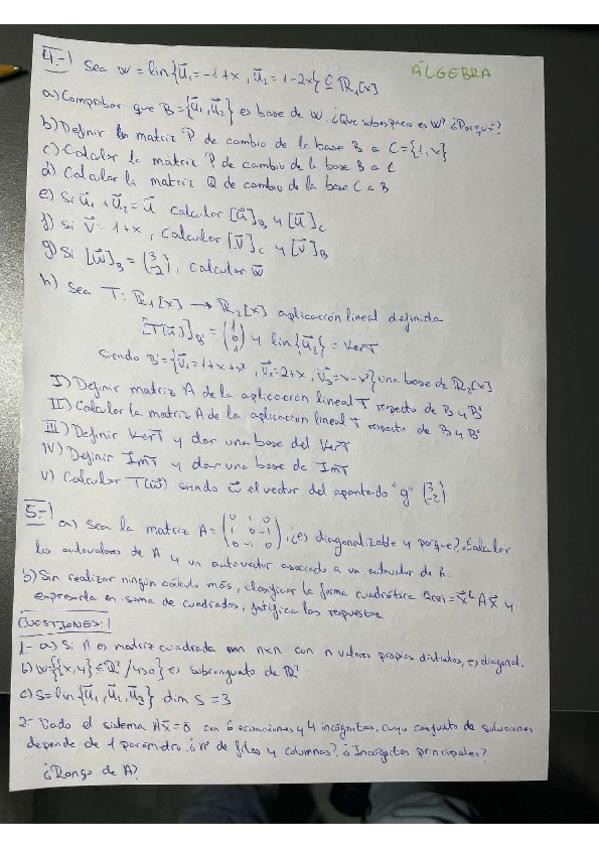 4.-| Sea W = lin{ū₁=-1+x, ū₂=1-2x} ⊆ ℝ₁[x]
ÁLGEBRA
a) Comprobar que B={ū₁,ū₂} es base de W. ¿Que subespacio es W? ¿Porqué?
b) Definir la matriz P de cambio de la base B a C={1,x}
c) Calcular la matriz P de cambio de la base B a C
d) Calcular la matriz Q de cambio de la base C a B
e) Si ū₁+ū₂=ū calcular [ū]_B y [ū]_C
f) Si v̄=1+x, calcular [v̄]_C y [v̄]_B
g) Si [w̄]_B = (3 -2), calcular w̄
h) Sea T: ℝ₁[x] → ℝ₂[x] aplicación lineal definida
[T(ū₁)]_B' = (1 0 1) y lin{ū₂} = KerT
siendo B'={v̄₁=1+x+x², v̄₂=2+x, v̄₃=x-x²} una base de ℝ₂[x]
I) Definir matriz A de la aplicación lineal T respecto de B y B'
II) Calcular la matriz A de la aplicación lineal T respecto de B y B'
III) Definir KerT y dar una base del KerT
IV) Definir ImT y dar una base de ImT
V) Calcular T(w̄) siendo w̄ el vector del apartado "g" (3 -2)
5.-| a) Sea la matriz A= (0 1 0
1 0 -1
0 -1 0), ¿es diagonalizable y porque?. Calcular
los autovalores de A y un autovector asociado a un autovalor de A.
b) Sin realizar ningún cálculo más, clasificar la forma cuadrática Q(x)=x̄ᵗAx̄ y
expresarla en suma de cuadrados, justifica las respuestas
CUESTIONES:|
1.- a) Si A es matriz cuadrada nxn con n valores propios distintos, es diagonal.
b) W={(x,y)∈ℝ²/y>0} es subconjunto de ℝ²
c) S=lin{ū₁,ū₂,ū₃} dim S=3
2- Dado el sistema Ax̄=ō con 6 ecuaciones y 4 incógnitas, cuyo conjunto de soluciones
depende de 1 parámetro. ¿Nº de filas y columnas? ¿Incógnitas principales?
¿Rango de A?